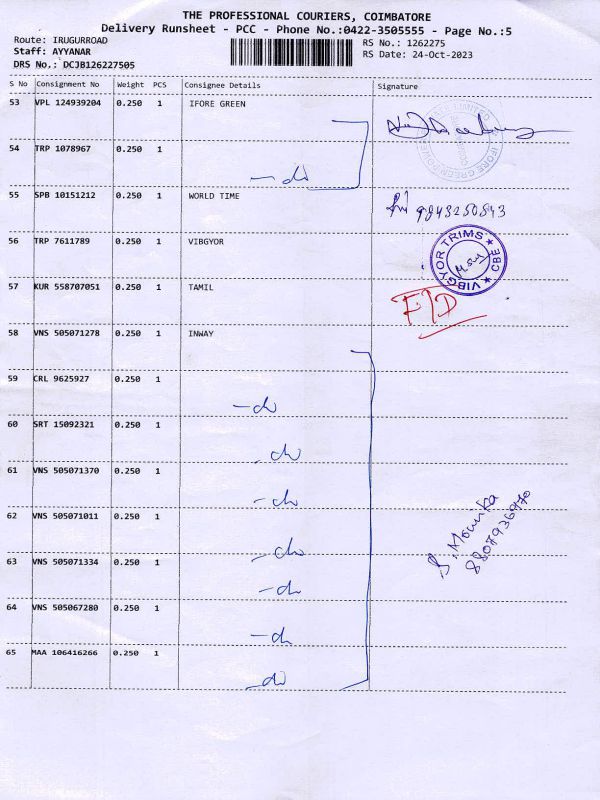 THE PROFESSIONAL COURIERS, COIMBATORE
Delivery Runsheet - PCC - Phone No.:0422-3505555 - Page No.:5
Route: IRUGURROAD
RS No.: 1262275
Staff: AYYANAR
RS Date: 24-Oct-2023
DRS No.: DCJB126227505
S No Consignment No Weight PCS Consignee Details Signature
53 VPL 124939204 0.250 1 IFORE GREEN
54 TRP 1078967 0.250 1
-do
55 SPB 10151212 0.250 1 WORLD TIME 9843250843
56 TRP 7611789 0.250 1 VIBGYOR
VIBGYOR TRIMS ★ CBE ★
57 KUR 558707051 0.250 1 TAMIL
58 VNS 505071278 0.250 1 INWAY
59 CRL 9625927 0.250 1
-do
60 SRT 15092321 0.250 1
-do
61 VNS 505071370 0.250 1
-do
62 VNS 505071011 0.250 1
-do
63 VNS 505071334 0.250 1
-do
64 VNS 505067280 0.250 1
-do
65 MAA 106416266 0.250 1
-do
S. Mounika
8807936970